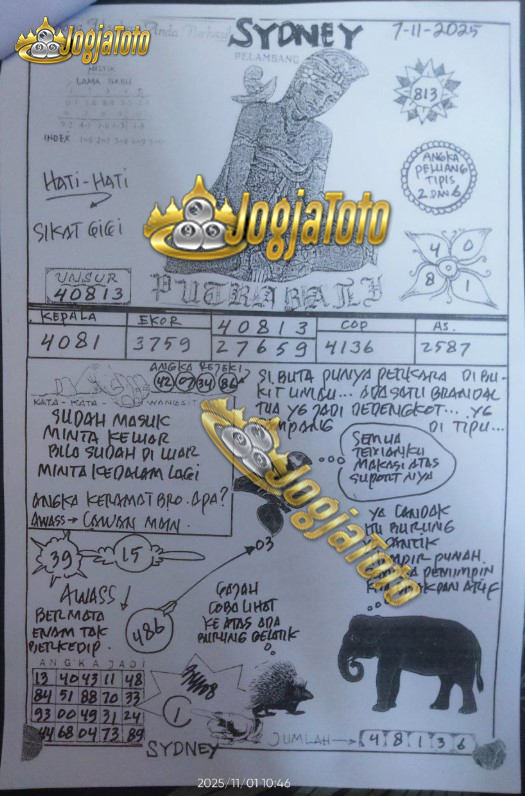 JogjaToto
Anda
SYDNEY
7-11-2025
PELAMBANG
MISTIK
LAMA BARU
INDEX
813
HATI-HATI
SIKAT GIGI
ANGKA
PELUANG
TIPIS
2 DAN 6
JogjaToto
4 0
8 1
UNSUR
40813
PUTRA BALI
KEPALA
EKOR
40813
COP
AS.
4081
3759
27659
4136
2587
ANGKA REJEKI?
42 07 34 86
KATA - KATA - WANGSIT
SUDAH MASUK
MINTA KELUAR
BILA SUDAH DI LUAR
MINTA KEDALAM LAGI
ANGKA KERAMAT BRO. APA?
AWASS → LAWAN MAIN.
SI BUTA PUNYA PERKARA DI BU-
KIT UMBU... ADA SATU BRANDAL
TUA YG JADI DEDENGKOT... YG
DI TIPU...
JogjaToto
SEMUA
TEMANKU
MAKASI ATAS
SUPORT NYA
YA CANDAK
ITU BURUNG
PUNAH.
PEMIMPIN
39
15
03
AWASS!
BERMATA
ENAM TAK
BERKEDIP.
486
GAJAH
COBA LIHAT
KE ATAS ADA
BURUNG GELATIK
ANGKA JADI
13 40 43 11 48
84 51 88 70 33
93 00 49 31 24
44 68 04 73 89
SYDNEY
JUMLAH → 4 8 1 3 6
2025/11/01 10:46